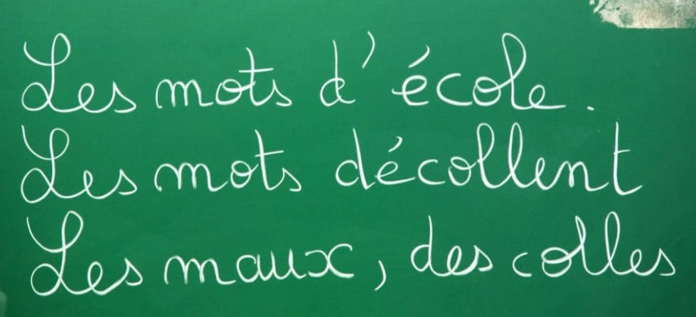 Les mots d'école.
Les mots décollent
Les maux, des colles